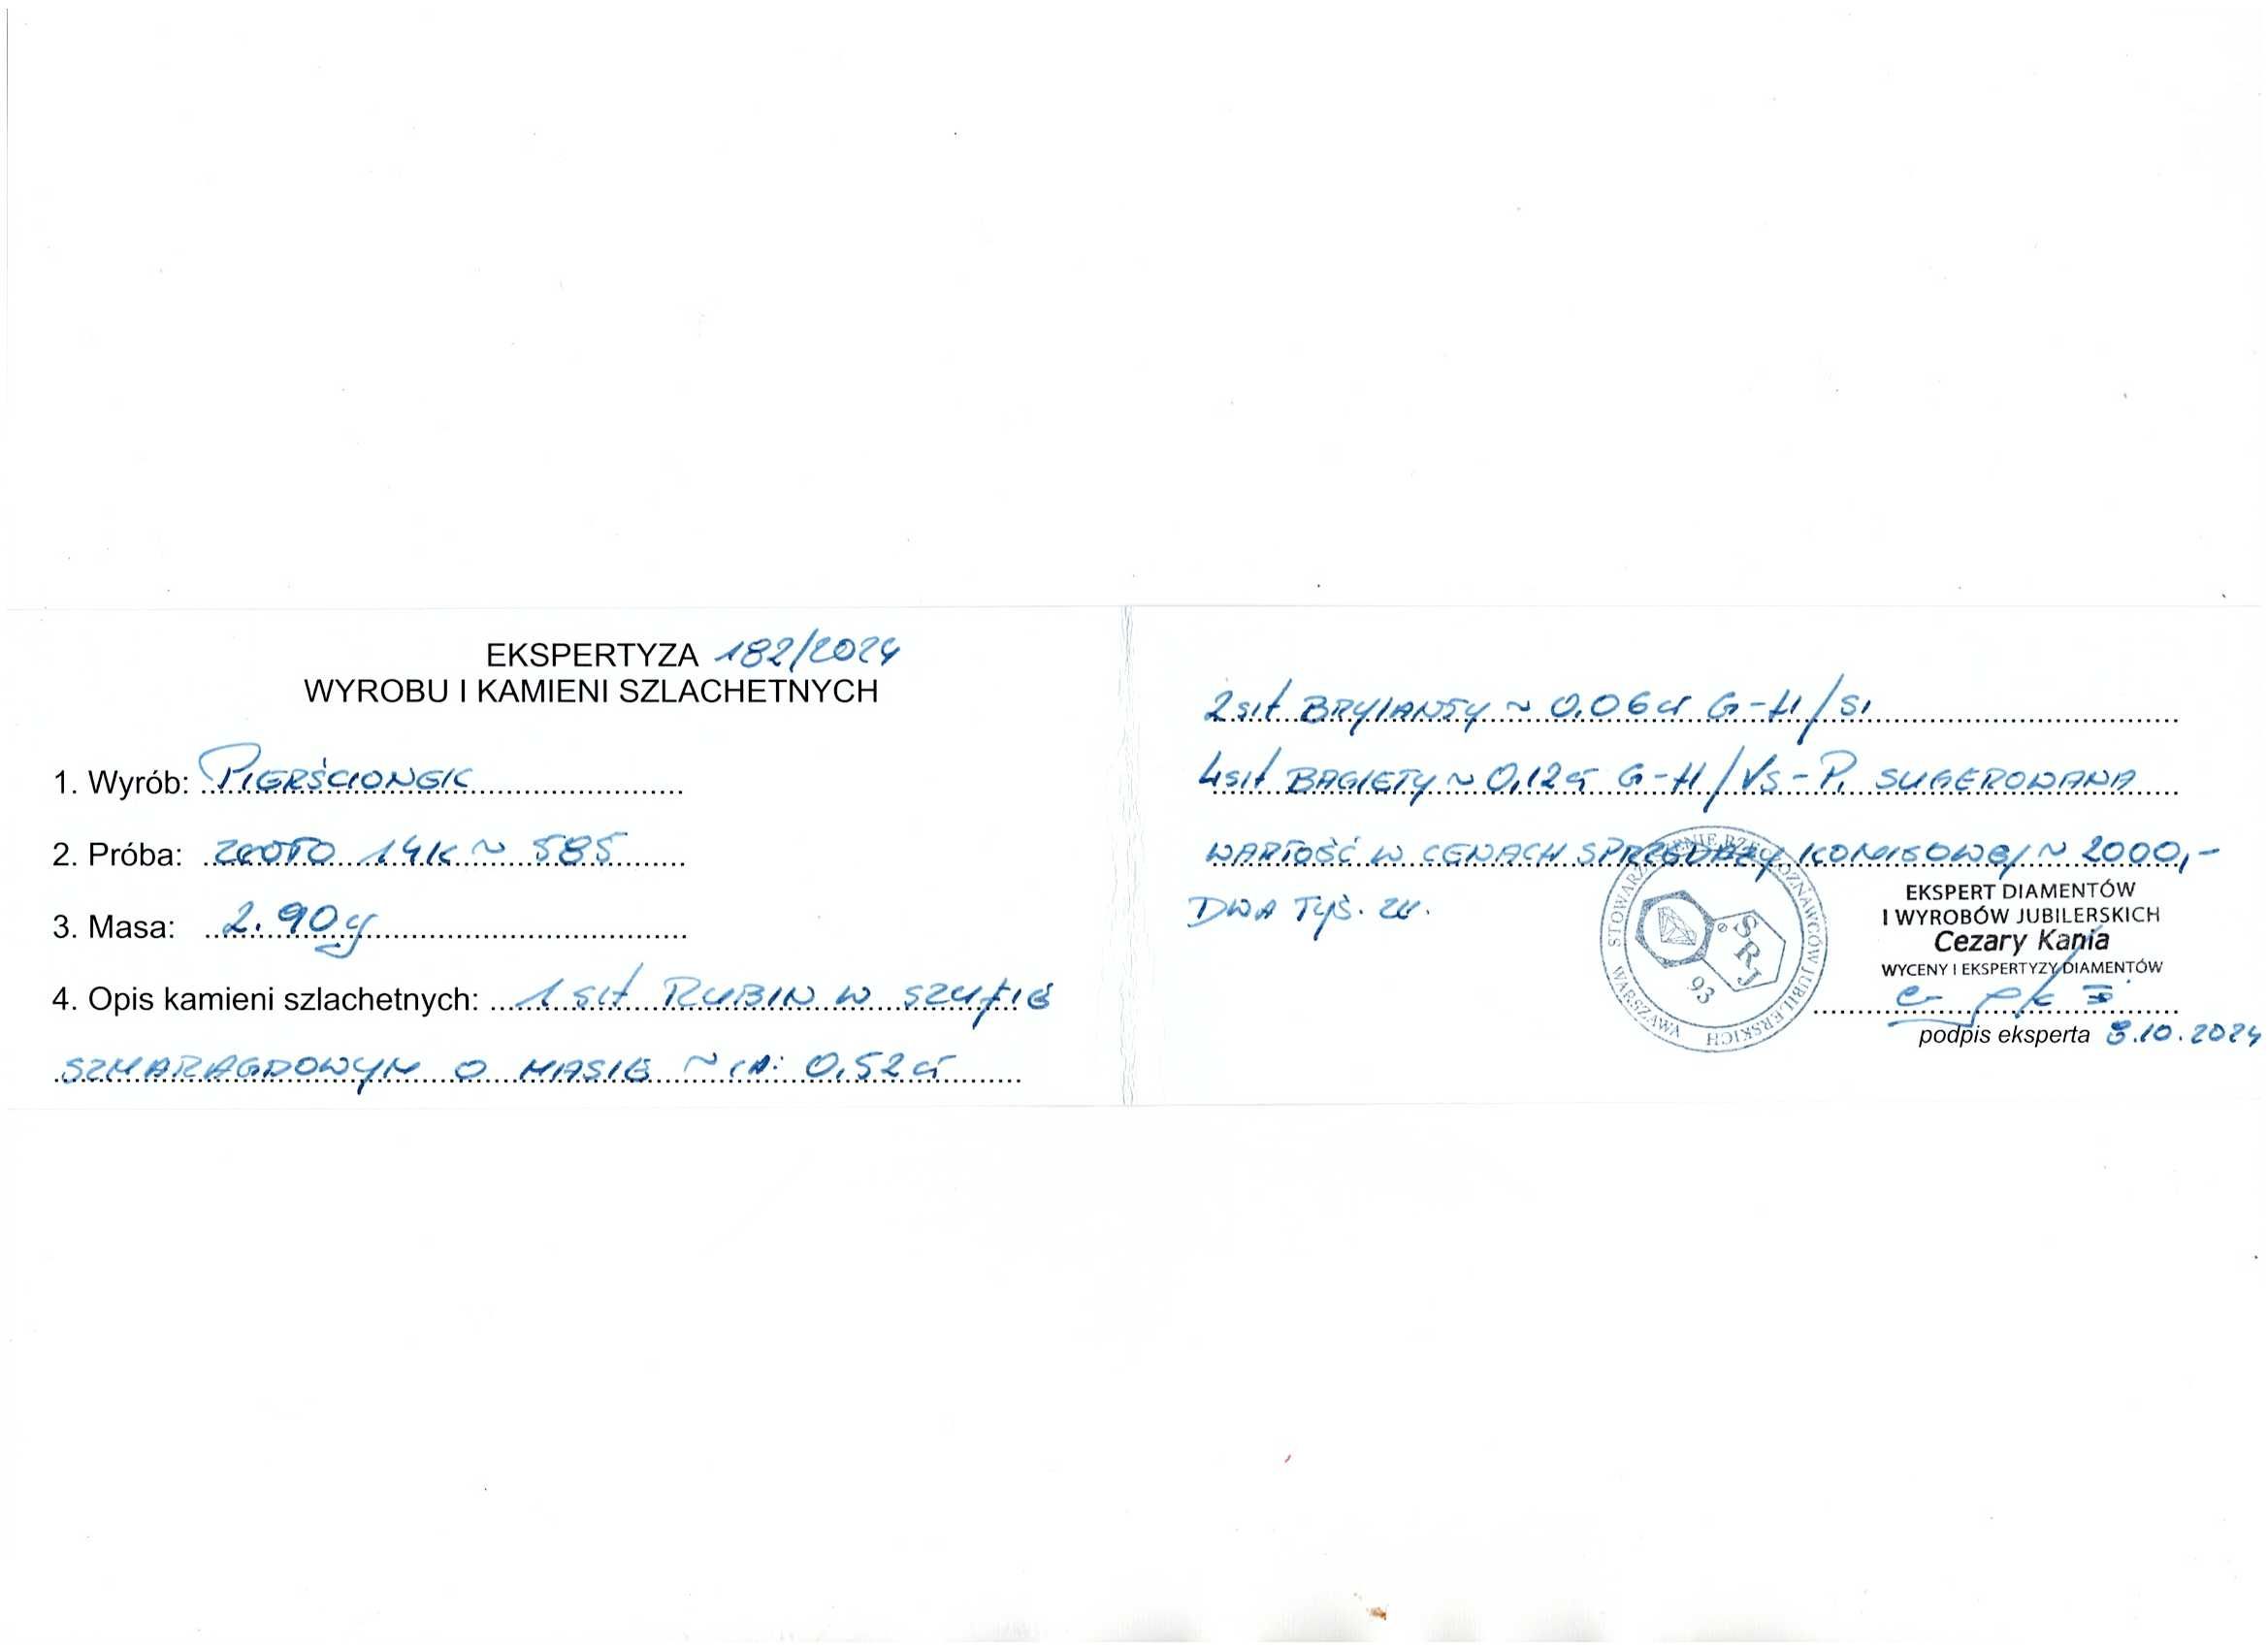 EKSPERTYZA 182/2024
WYROBU I KAMIENI SZLACHETNYCH
1. Wyrób: PIERŚCIONEK
2. Próba: ZŁOTO 14K ~ 585
3. Masa: 2.90g
4. Opis kamieni szlachetnych: 1 szt RUBIN W SZLIFIE
SZMARAGDOWYM O MASIE ~ CA: 0,52 ct
2 szt BRYLANTY ~ 0.06 ct G-H/SI
4 szt BAGIETY ~ 0,12 ct G-H/VS-P. SUGEROWANA
WARTOŚĆ W CENACH SPRZEDAŻY KOMISOWEJ ~ 2000,-
DWA TYŚ. ZŁ.
STOWARZYSZENIE RZECZOZNAWCÓW JUBILERSKICH WARSZAWA
SRJ
93
EKSPERT DIAMENTÓW
I WYROBÓW JUBILERSKICH
Cezary Kania
WYCENY I EKSPERTYZY DIAMENTÓW
podpis eksperta 8.10.2024